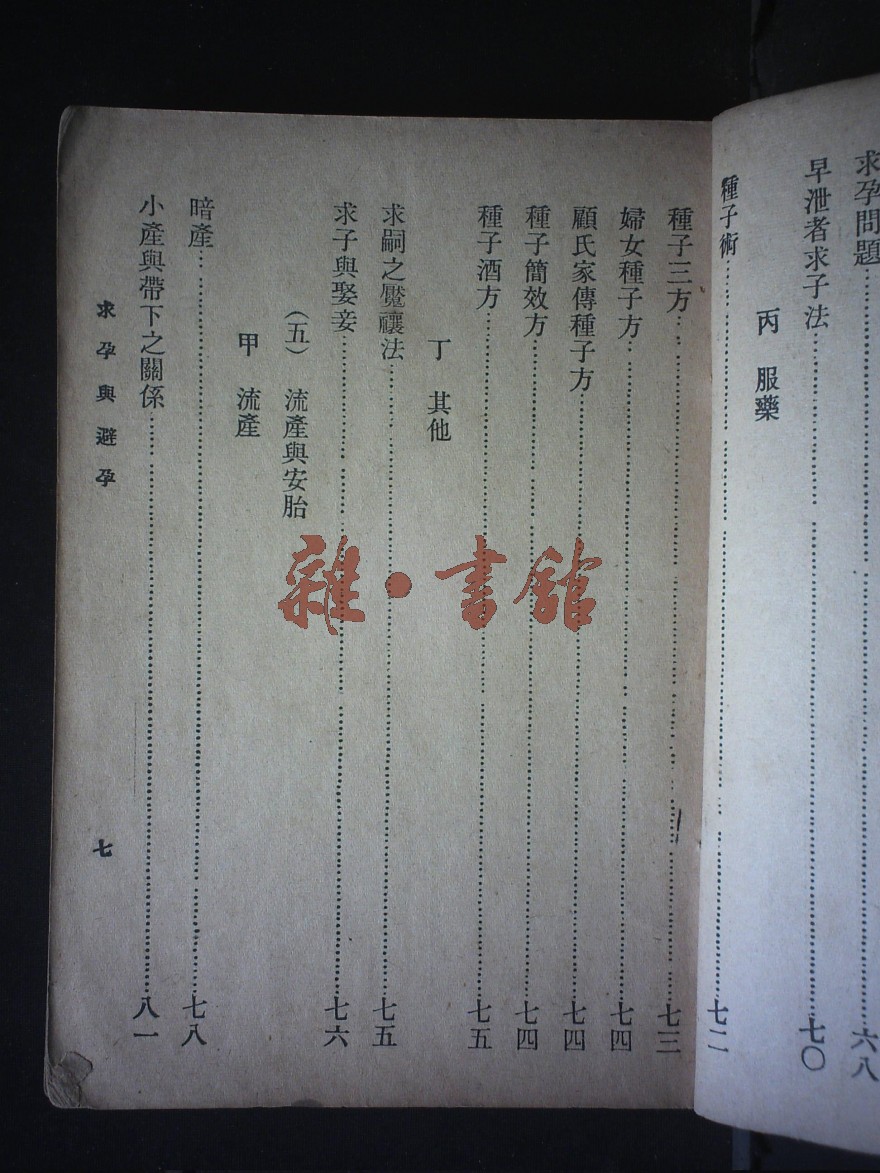 求孕問題……六八
早泄者求子法……七〇
丙　服藥
種子術……七二
種子三方……七三
婦女種子方……七四
顧氏家傳種子方……七四
種子簡效方……七四
種子酒方……七五
丁　其他
求嗣之魘禳法……七五
求子與娶妾……七六
（五）　流產與安胎
甲　流產
暗產……七八
小產與帶下之關係……八一
求孕與避孕
七
雜·書館